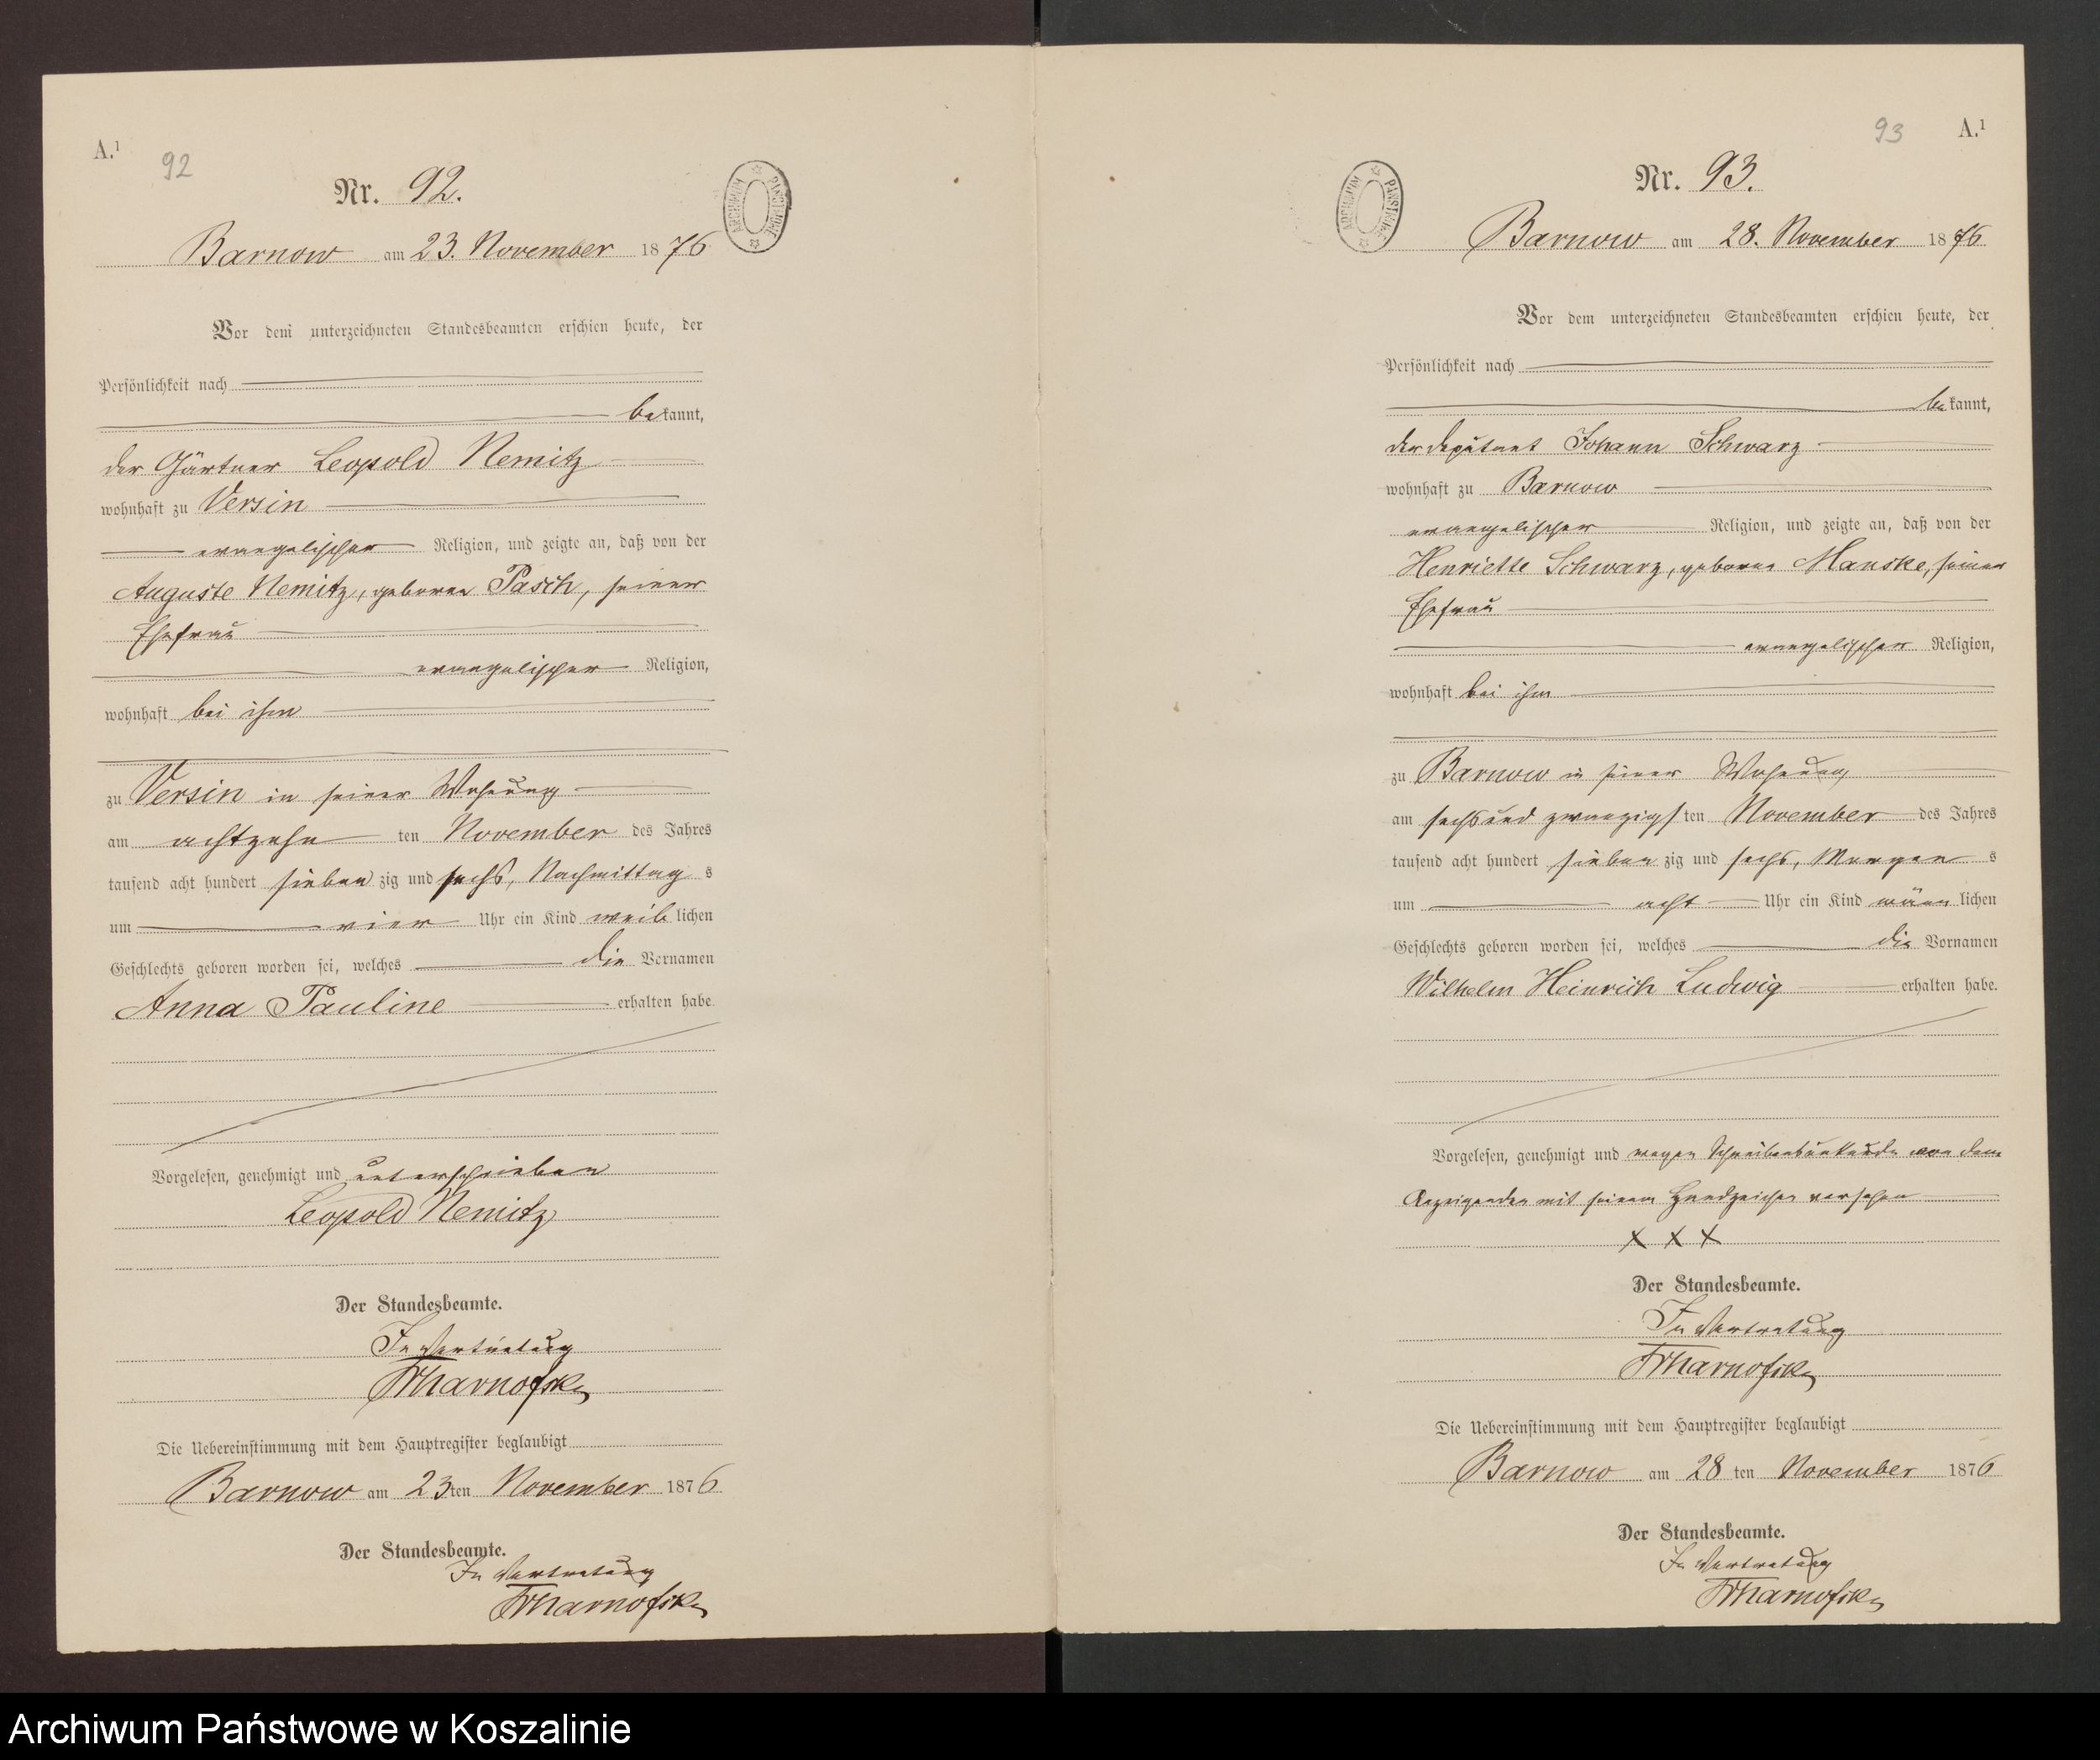 A.¹
92
Nr. 92.
ARCHIWUM PAŃSTWOWE
Barnow am 23. November 1876
Vor dem unterzeichneten Standesbeamten erschien heute, der
Persönlichkeit nach
bekannt,
der Gärtner Leopold Nemitz
wohnhaft zu Versin
evangelischer Religion, und zeigte an, daß von der
Auguste Nemitz, geborene Pasch, seiner
Ehefrau
evangelischer Religion,
wohnhaft bei ihm
zu Versin in seiner Wohnung
am achtzehnten November des Jahres
tausend acht hundert siebenzig und sechs, Nachmittags
um vier Uhr ein Kind weiblichen
Geschlechts geboren worden sei, welches die Vornamen
Anna Pauline erhalten habe.
Vorgelesen, genehmigt und unterschrieben
Leopold Nemitz
Der Standesbeamte.
In Vertretung
Die Uebereinstimmung mit dem Hauptregister beglaubigt
Barnow am 23ten November 1876
Der Standesbeamte.
In Vertretung
93
A.¹
Nr. 93.
ARCHIWUM PAŃSTWOWE
Barnow am 28. November 1876
Vor dem unterzeichneten Standesbeamten erschien heute, der
Persönlichkeit nach
bekannt,
der Deputant Johann Schwarz
wohnhaft zu Barnow
evangelischer Religion, und zeigte an, daß von der
Henriette Schwarz, geborene Manske, seiner
Ehefrau
evangelischer Religion,
wohnhaft bei ihm
zu Barnow in seiner Wohnung
am sechsundzwanzigsten November des Jahres
tausend acht hundert siebenzig und sechs, Morgens
um acht Uhr ein Kind männlichen
Geschlechts geboren worden sei, welches die Vornamen
Wilhelm Heinrich Ludwig erhalten habe.
Vorgelesen, genehmigt und wegen Schreibensunkunde von dem
Anzeigenden mit seinem Handzeichen versehen
X X X
Der Standesbeamte.
In Vertretung
Die Uebereinstimmung mit dem Hauptregister beglaubigt
Barnow am 28ten November 1876
Der Standesbeamte.
In Vertretung
Archiwum Państwowe w Koszalinie